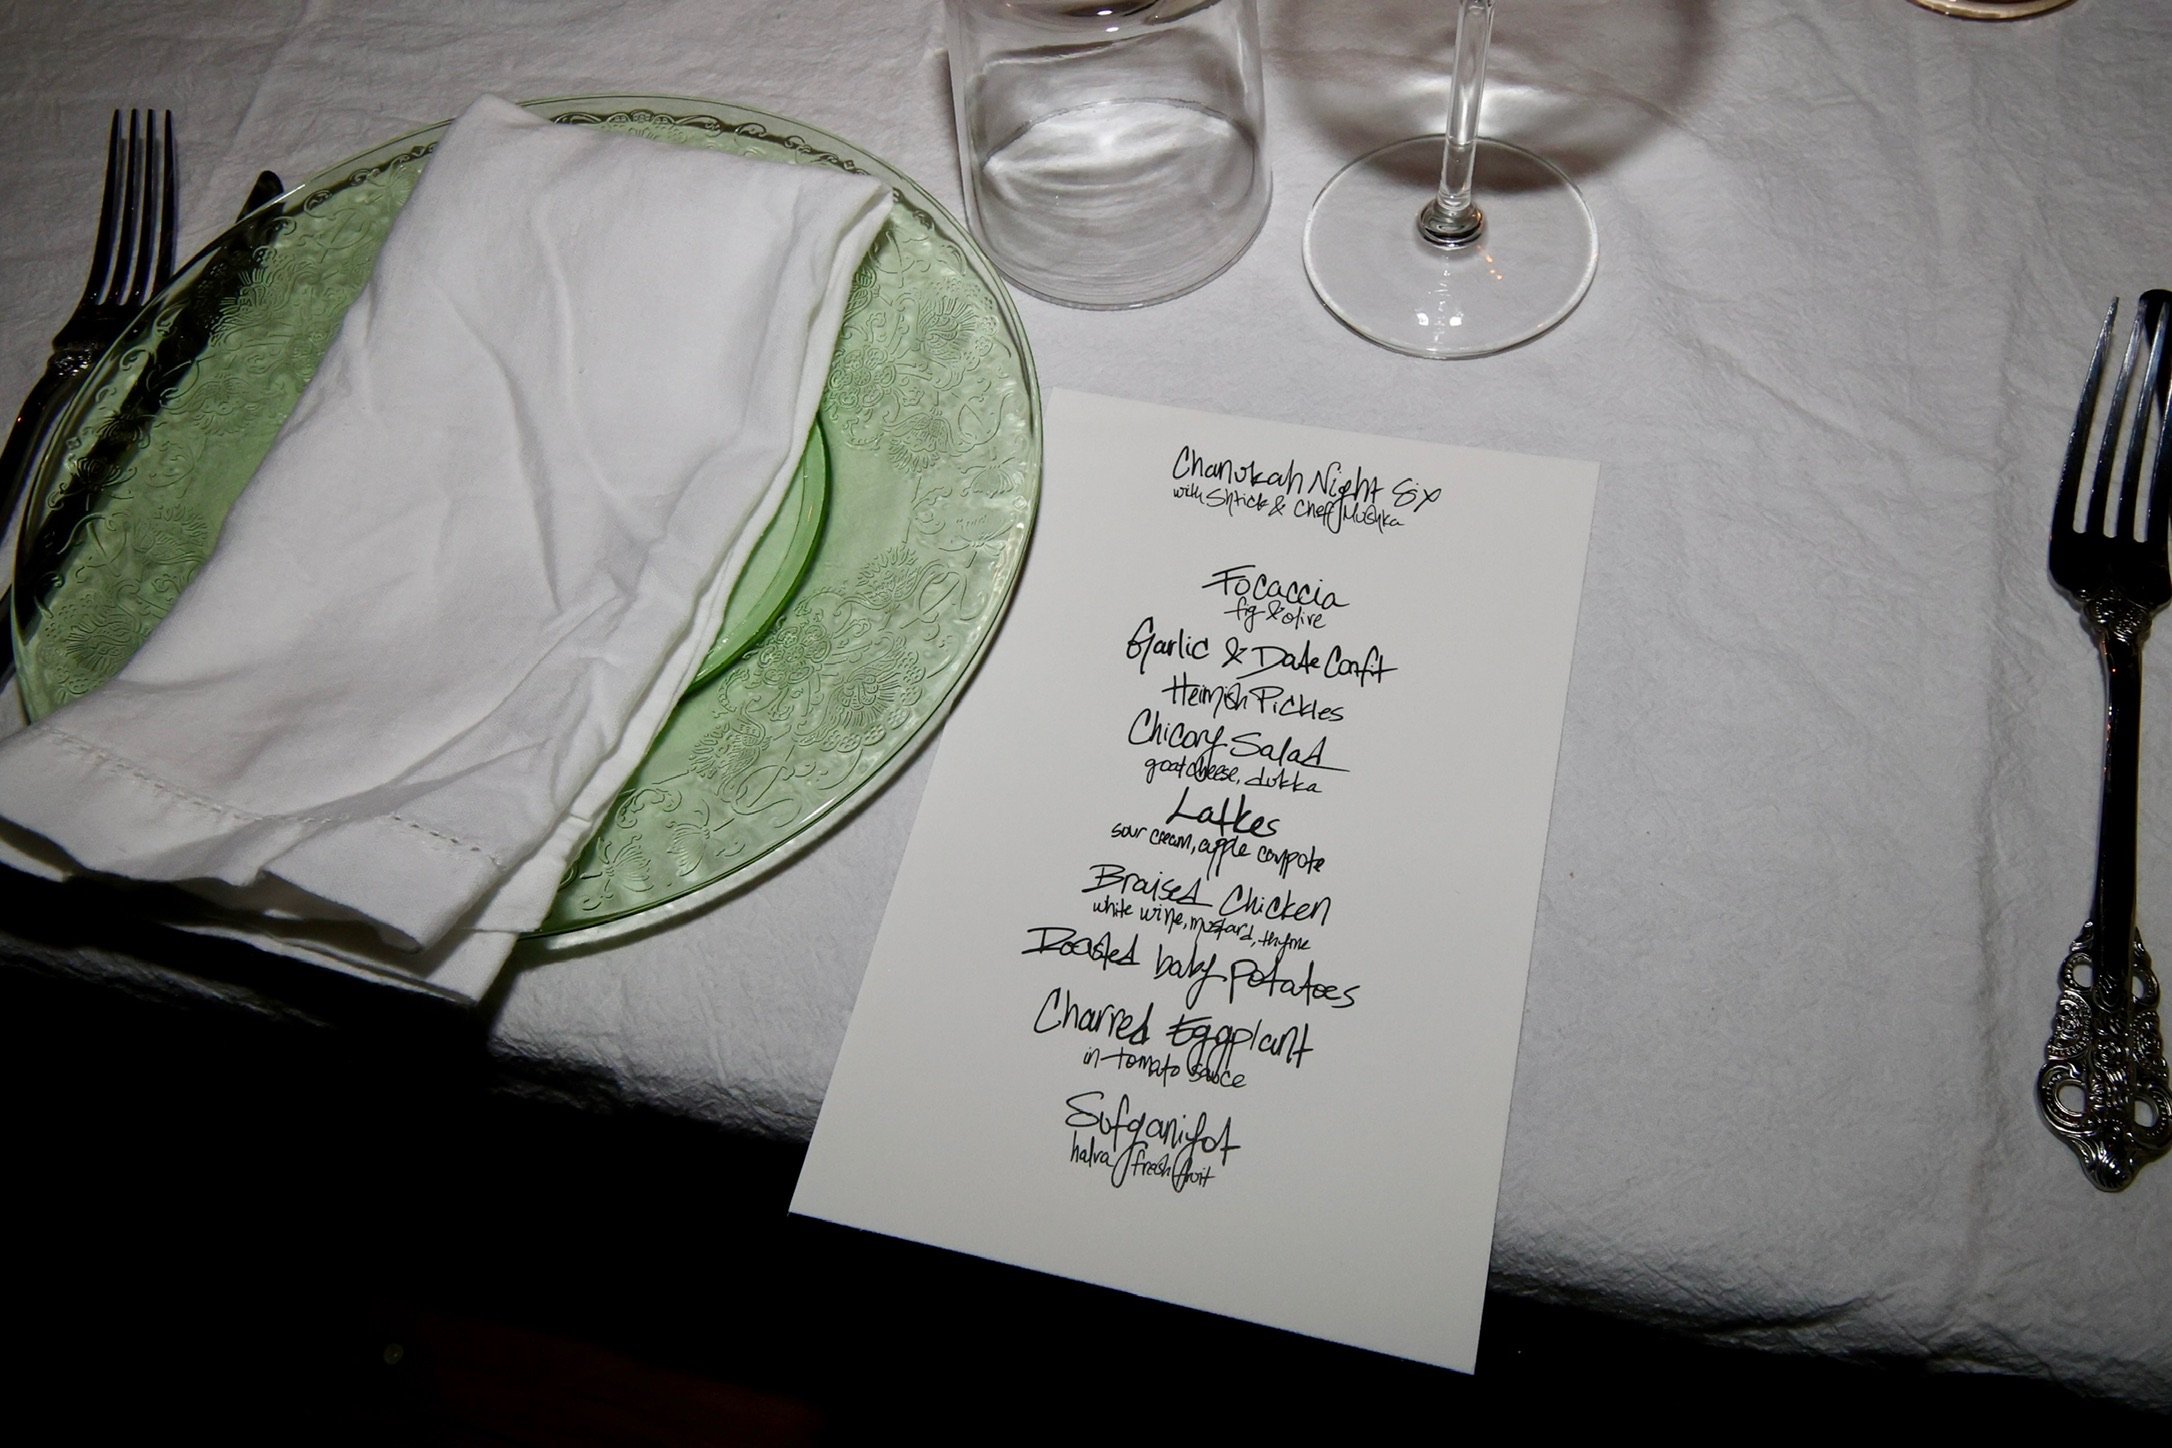 Chanukah Night Six
with Shtick & Chef Mushka
Focaccia
fig & olive
Garlic & Date Confit
Heimish Pickles
Chicory Salad
goat cheese, dukka
Latkes
sour cream, apple compote
Braised Chicken
white wine, mustard, thyme
Roasted baby potatoes
Charred Eggplant
in tomato sauce
Sufganiyot
halva, fresh fruit